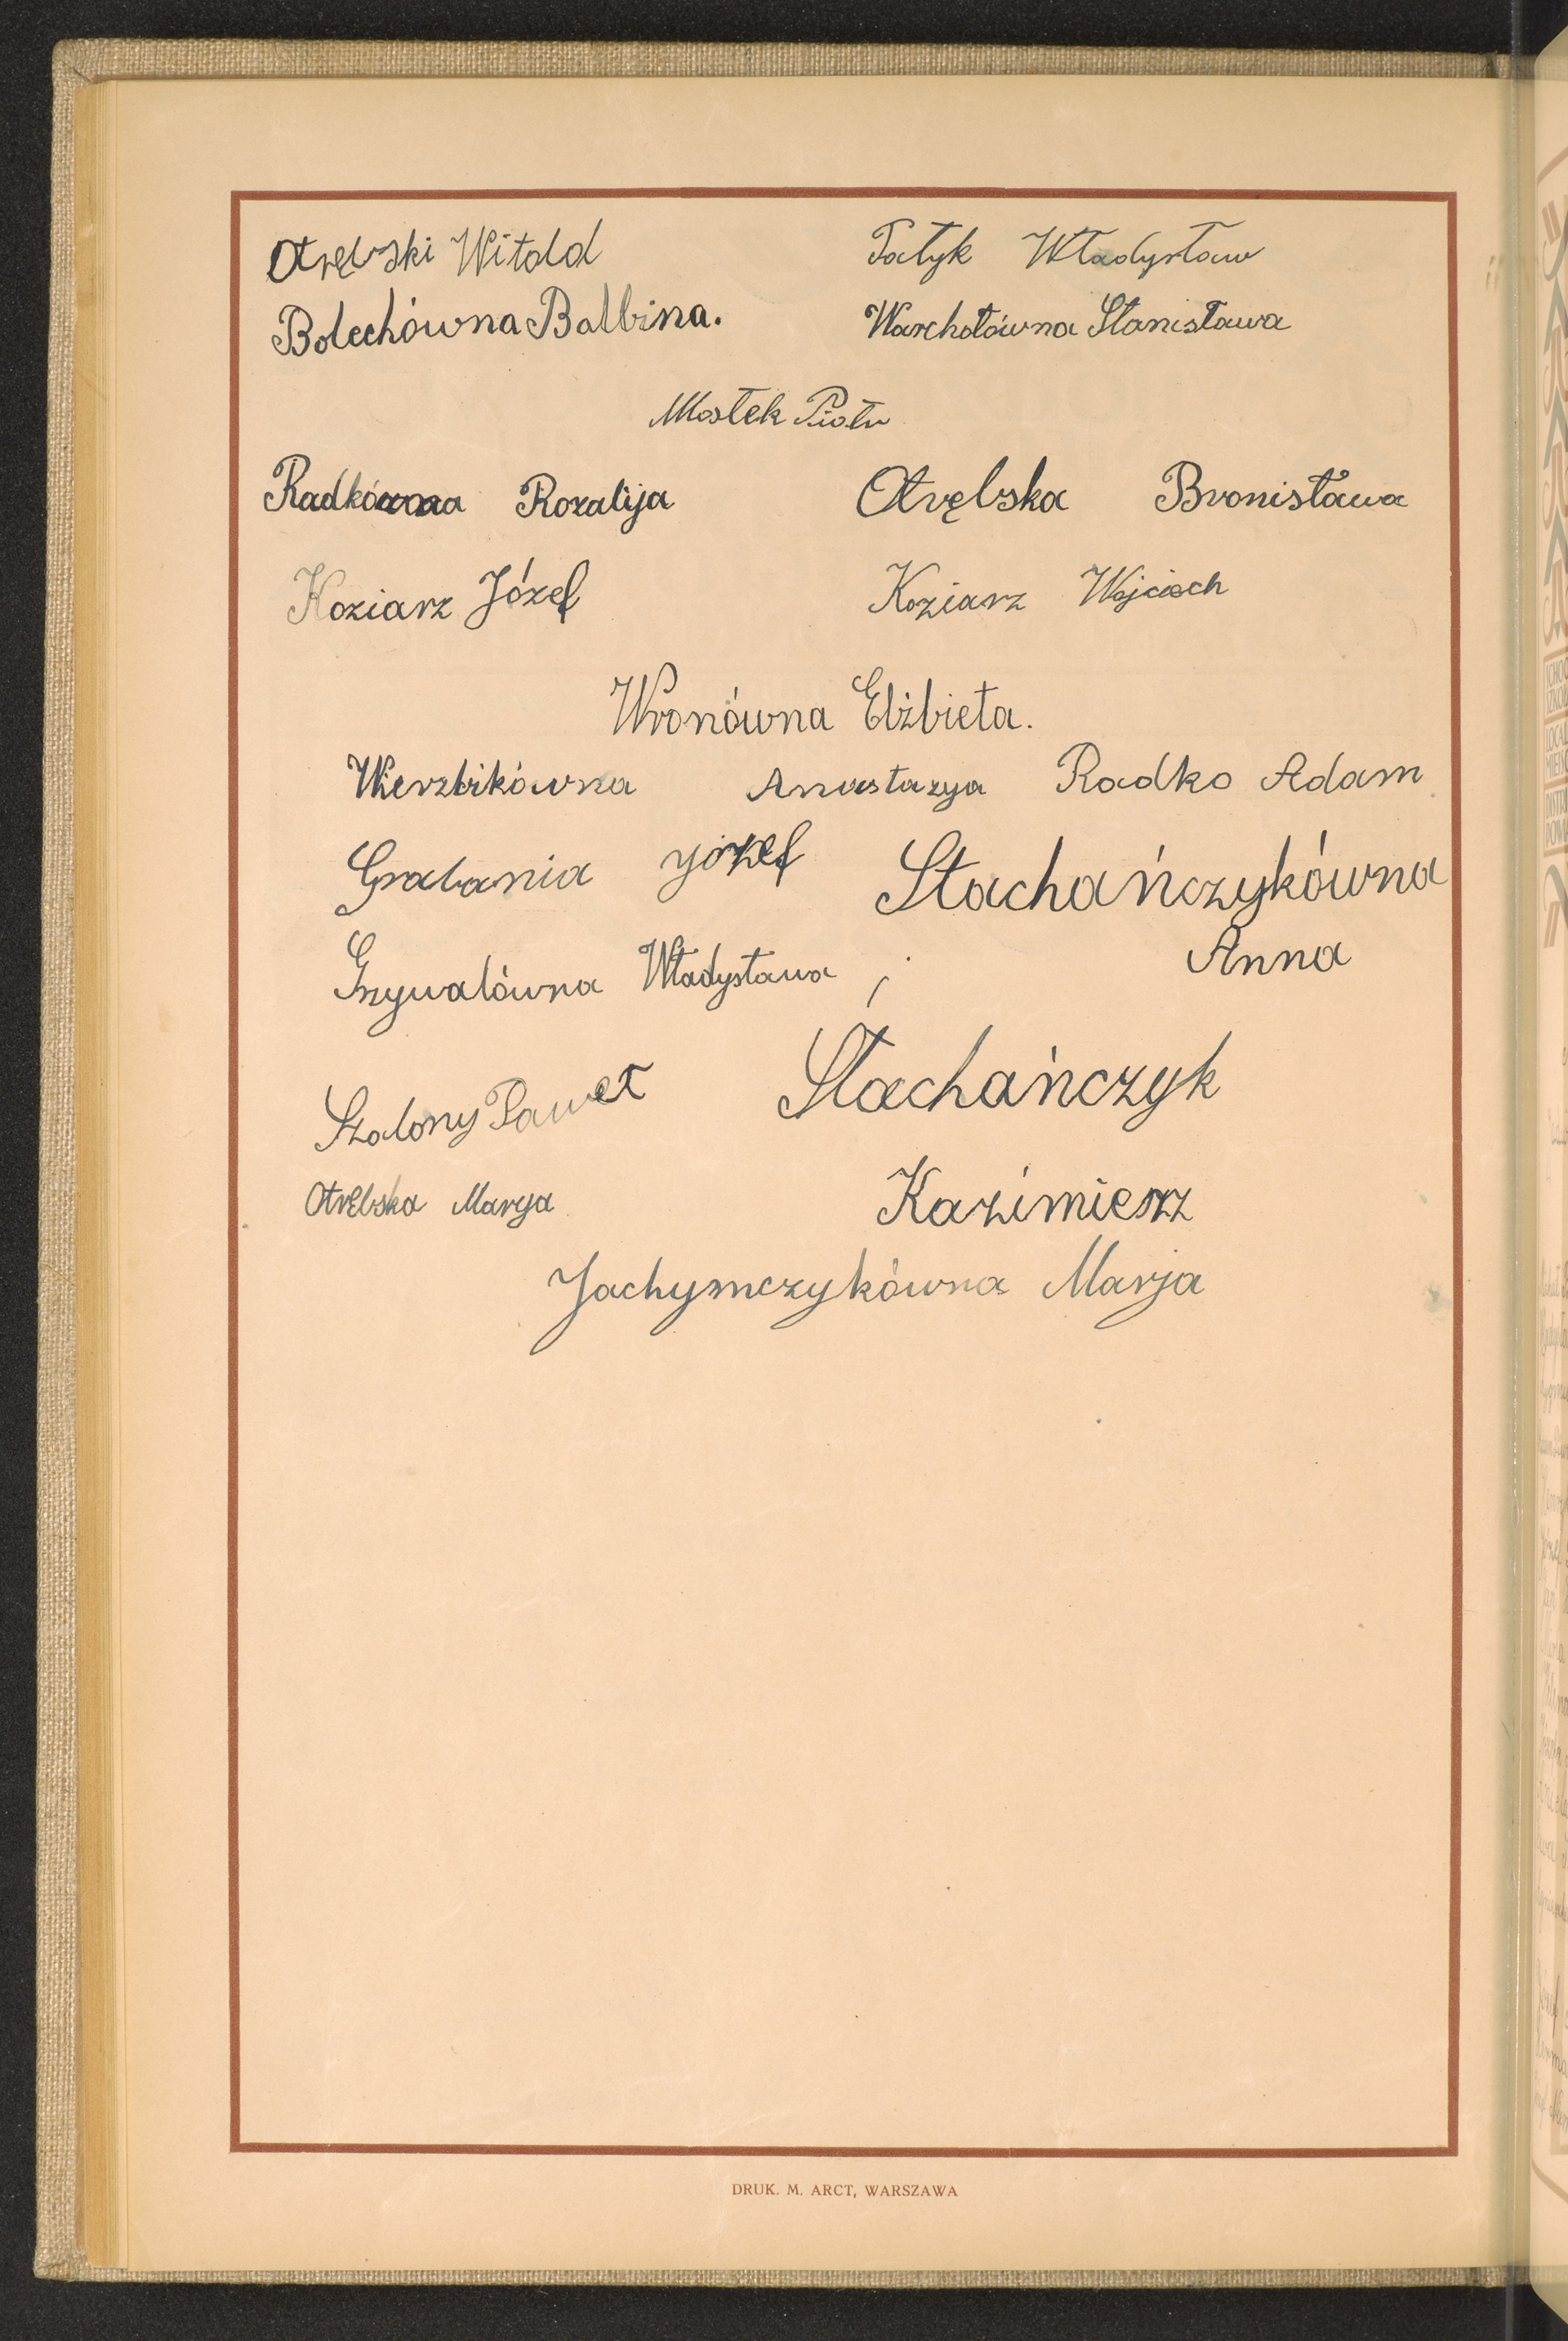 Otrębski Witold Fatyk Władysław
Bolechówna Balbina. Warchołówna Stanisława
Mostek Piotr
Radkówna Rozalija Otrębska Bronisława
Koziarz Józef Koziarz Wojciech
Wronówna Elżbieta.
Wierzbikówna Anastazya Radko Adam
Grabania Józef Stachańczykówna
Anna
Grzywalówna Władysława ;
Stachańczyk
Szalony Paweł
Kazimierz
Otrębska Marya
Jachymczykówna Marja
DRUK. M. ARCT, WARSZAWA